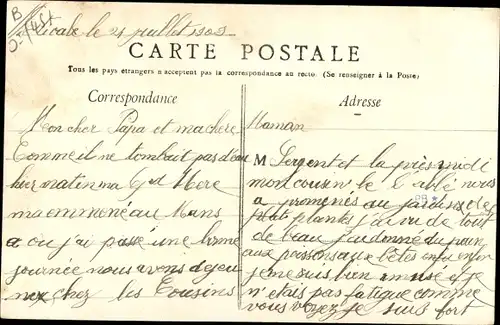 le 24 juillet 1903
CARTE POSTALE
Tous les pays étrangers n'acceptent pas la correspondance au recto. (Se renseigner à la Poste)
Correspondance
Adresse
Mon cher Papa et ma chère Maman
Comme il ne tombait pas d'eau
hier matin ma Gd Mere
ma emmoné au Mans
a ou j'ai passé une bonne
journée nous avons dejeu
ner chez les Cousins
M Sergent et la près midi
mon cousin le l'ablé nous
a promenés au jardin de
plantes j'ai vu de tout
de beau j'ai donné du pain
aux poissons aux bêtes enfin
je me suis bien amusé et je
n'etais pas fatigué comme
vous voyez je suis fort